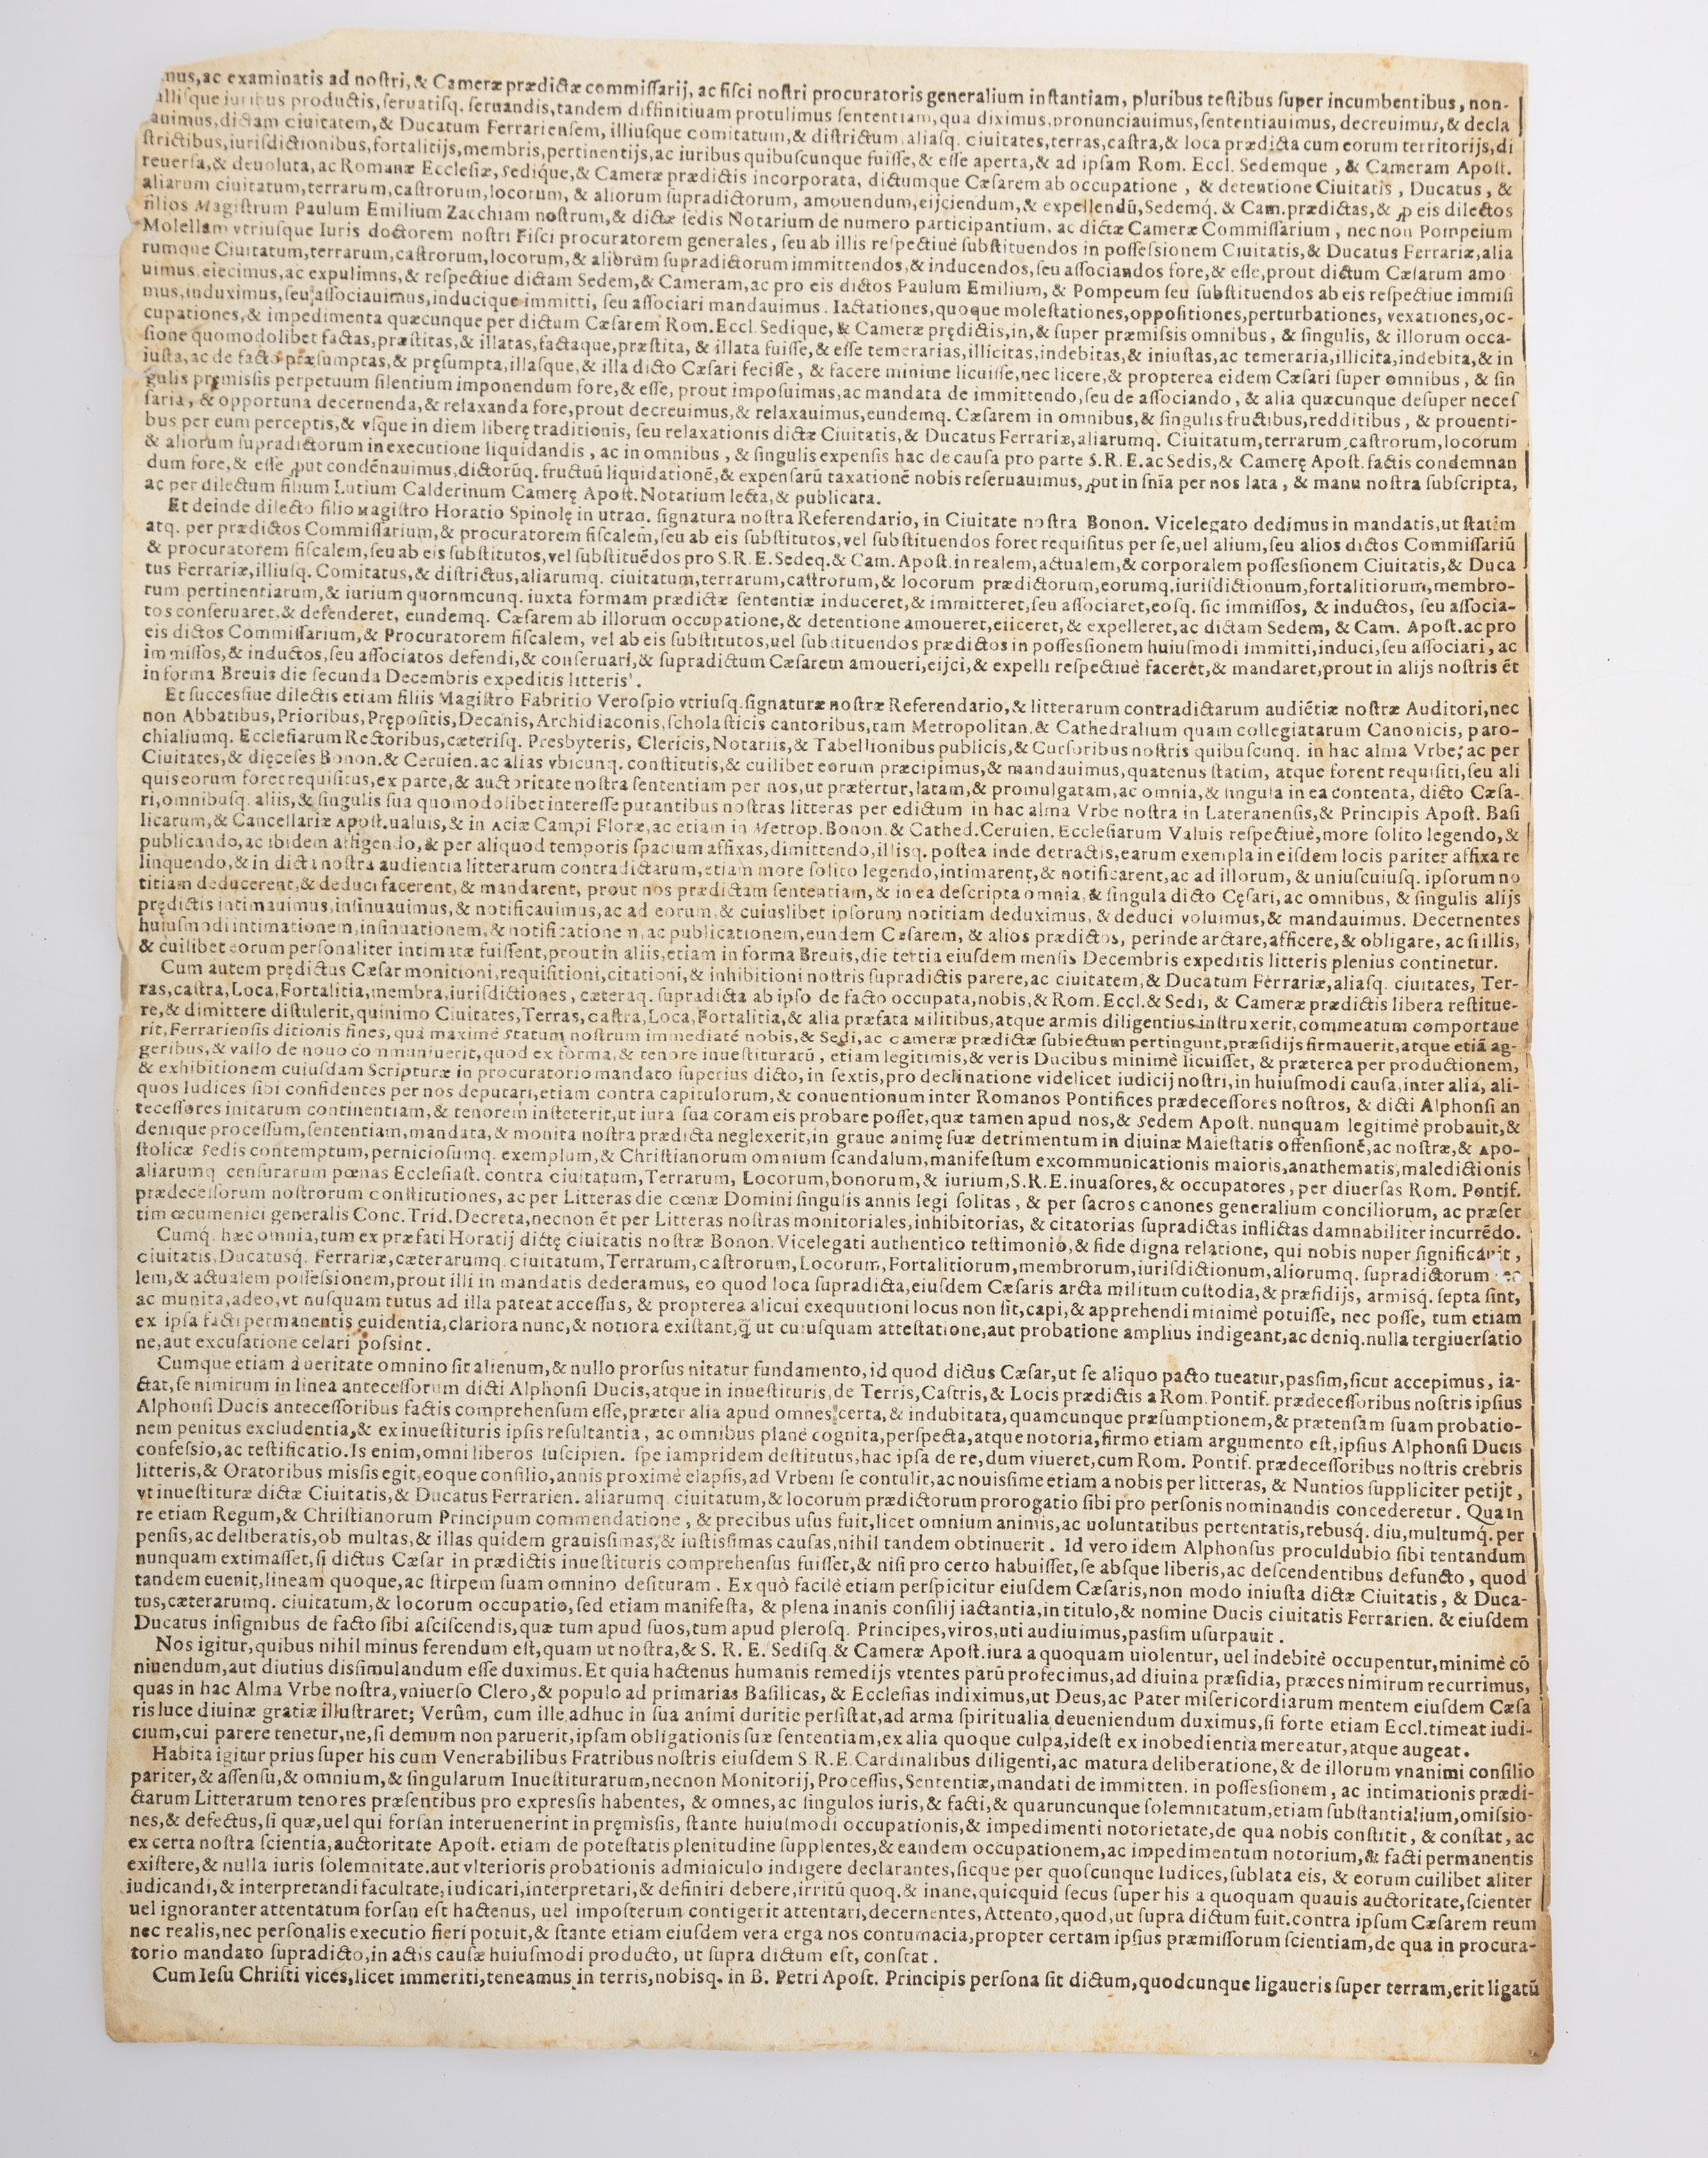 mus,ac examinatis ad noſtri,& Cameræ prædictæ commiſſarij, ac fiſci noſtri procuratoris generalium inſtantiam, pluribus teſtibus ſuper incumbentibus, non-
alliſque iuribus productis,ſeruatiſq. ſeruandis,tandem diffinitiuam protulimus ſententiam,qua diximus,pronunciauimus,ſententiauimus, decreuimus,& decla
auimus,dictam ciuitatem,& Ducatum Ferrarienſem, illiuſque comitatum,& diſtrictum,aliaſq. ciuitates,terras,caſtra,& loca prædicta cum eorum territorijs,di
ſtrictibus,iuriſdictionibus,fortalitijs,membris,pertinentijs,ac iuribus quibuſcunque fuiſſe,& eſſe aperta,& ad ipſam Rom. Eccl. Sedemque , & Cameram Apoſt.
reuerſa,& deuoluta, ac Romanæ Eccleſiæ, Sedique,& Cameræ prædictis incorporata, dictumque Cæſarem ab occupatione , & detentione Ciuitatis , Ducatus , &
aliarum ciuitatum,terrarum,caſtrorum,locorum, & aliorum ſupradictorum, amouendum,eijciendum,& expellendū,Sedemq́. & Cam.prædictas,& ꝓ eis dilectos
filios Magiſtrum Paulum Emilium Zacchiam noſtrum,& dictæ ſedis Notarium de numero participantium, ac dictæ Cameræ Commiſſarium , nec non Pompeium
Molellam vtriuſque Iuris doctorem noſtri Fiſci procuratorem generales , ſeu ab illis reſpectiuè ſubſtituendos in poſſeſsionem Ciuitatis,& Ducatus Ferrariæ,alia
rumque Ciuitatum,terrarum,caſtrorum,locorum,& aliorum ſupradictorum immittendos,& inducendos,ſeu aſſociandos fore,& eſſe,prout dictum Cæſarum amo
uimus,eiecimus,ac expulimns,& reſpectiue dictam Sedem,& Cameram,ac pro eis dictos Paulum Emilium,& Pompeum ſeu ſubſtituendos ab eis reſpectiue immiſi
mus,induximus,ſeu aſſociauimus,inducique immitti, ſeu aſſociari mandauimus . Iactationes,quoque moleſtationes,oppoſitiones,perturbationes, vexationes,oc-
cupationes,& impedimenta quæcunque per dictum Cæſarem Rom.Eccl.Sedique,& Cameræ prędictis,in,& ſuper præmiſsis omnibus , & ſingulis, & illorum occa-
ſione quomodolibet factas,præſtitas,& illatas,factaque,præſtita, & illata fuiſſe,& eſſe temerarias,illicitas,indebitas,& iniuſtas,ac temeraria,illicita,indebita,& in
iuſta,ac de facto præſumptas,& pręſumpta,illaſque,& illa dicto Cæſari feciſſe , & facere minime licuiſſe,nec licere,& propterea eidem Cæſari ſuper omnibus , & ſin
gulis pręmiſsis perpetuum ſilentium imponendum fore,& eſſe, prout impoſuimus,ac mandata de immittendo,ſeu de aſſociando , & alia quæcunque deſuper neceſ
ſaria, & opportuna decernenda,& relaxanda fore,prout decreuimus,& relaxauimus,eundemq. Cæſarem in omnibus,& ſingulis fructibus,redditibus , & prouenti-
bus per eum perceptis,& vſque in diem liberę traditionis, ſeu relaxationis dictæ Ciuitatis,& Ducatus Ferrariæ,aliarumq. Ciuitatum,terrarum,caſtrorum,locorum
& aliorum ſupradictorum in executione liquidandis , ac in omnibus , & ſingulis expenſis hac de cauſa pro parte S.R.E.ac Sedis,& Camerę Apoſt.factis condemnan
dum fore,& eſſe ꝓut condēnauimus,dictorūq. fructuū liquidationē,& expenſarū taxationē nobis reſeruauimus,ꝓut in ſnīa per nos lata , & manu noſtra ſubſcripta,
ac per dilectum filium Lutium Calderinum Camerę Apoſt.Notatium lecta,& publicata.
Et deinde dilecto filio Magiſtro Horatio Spinolę in utraq. ſignatura noſtra Referendario, in Ciuitate noſtra Bonon. Vicelegato dedimus in mandatis,ut ſtatim
atq. per prædictos Commiſſarium,& procuratorem fiſcalem,ſeu ab eis ſubſtitutos,vel ſubſtituendos foret requiſitus per ſe,uel alium,ſeu alios dictos Commiſſariū
& procuratorem fiſcalem,ſeu ab eis ſubſtitutos,vel ſubſtituēdos pro S.R.E.Sedeq.& Cam.Apoſt.in realem,actualem,& corporalem poſſeſsionem Ciuitatis,& Duca
tus Ferrariæ,illiuſq. Comitatus,& diſtrictus,aliarumq. ciuitatum,terrarum,caſtrorum,& locorum prædictorum,eorumq.iuriſdictionum,fortalitiorum,membro-
rum pertinentiarum,& iurium quornmcunq. iuxta formam prædictæ ſententiæ induceret,& immitteret,ſeu aſſociaret,eoſq. ſic immiſſos, & inductos, ſeu aſſocia-
tos conſeruaret,& defenderet, eundemq. Cæſarem ab illorum occupatione,& detentione amoueret,eiiceret,& expelleret,ac dictam Sedem, & Cam. Apoſt.ac pro
eis dictos Commiſſarium,& Procuratorem fiſcalem, vel ab eis ſubſtitutos,uel ſubſtituendos prædictos in poſſeſsionem huiuſmodi immitti,induci,ſeu aſſociari, ac
immiſſos,& inductos,ſeu aſſociatos defendi,& conſeruari,& ſupradictum Cæſarem amoueri,eijci,& expelli reſpectiuè faceret,& mandaret,prout in alijs noſtris ēt
in forma Breuis die ſecunda Decembris expeditis litteris .
Et ſucceſsiue dilectis etiam filiis Magiſtro Fabritio Veroſpio vtriuſq.ſignaturæ noſtræ Referendario,& litterarum contradictarum audiētiæ noſtræ Auditori,nec
non Abbatibus,Prioribus,Prępoſitis,Decanis,Archidiaconis,ſcholaſticis cantoribus,tam Metropolitan.& Cathedralium quam collegiatarum Canonicis, paro-
chialiumq. Eccleſiarum Rectoribus,cæteriſq. Presbyteris, Clericis,Notariis,& Tabellionibus publicis,& Curſoribus noſtris quibuſcunq. in hac alma Vrbe, ac per
Ciuitates,& dięceſes Bonon.& Ceruien.ac alias vbicunq. conſtitutis,& cuilibet eorum præcipimus,& mandauimus,quatenus ſtatim, atque forent requiſiti,ſeu ali
quis eorum foret requiſitus,ex parte,& auctoritate noſtra ſententiam per nos,ut præfertur,latam,& promulgatam,ac omnia,& ſingula in ea contenta, dicto Cæſa-
ri,omnibuſq. aliis,& ſingulis ſua quomodolibet intereſſe putantibus noſtras litteras per edictum in hac alma Vrbe noſtra in Lateranenſis,& Principis Apoſt. Baſi
licarum,& Cancellariæ Apoſt.ualuis,& in Aciæ Campi Floræ,ac etiam in Metrop.Bonon.& Cathed.Ceruien. Eccleſiarum Valuis reſpectiuè,more ſolito legendo,&
publicando,ac ibidem affigendo,& per aliquod temporis ſpacium affixas,dimittendo,illiſq. poſtea inde detractis,earum exempla in eiſdem locis pariter affixa re
linquendo,& in dicta noſtra audientia litterarum contradictarum,etiam more ſolito legendo,intimarent,& notificarent,ac ad illorum,& uniuſcuiuſq. ipſorum no
titiam deducerent,& deduci facerent,& mandarent, prout nos prædictam ſententiam,& in ea deſcripta omnia,& ſingula dicto Cęſari,ac omnibus, & ſingulis alijs
prędictis intimauimus,inſinuauimus,& notificauimus,ac ad eorum,& cuiuslibet ipſorum notitiam deduximus, & deduci voluimus,& mandauimus. Decernentes
huiuſmodi intimationem,inſinuationem,& notificationem,ac publicationem,eundem Cæſarem, & alios prædictos, perinde arctare,afficere,& obligare, ac ſi illis,
& cuilibet eorum perſonaliter intimatæ fuiſſent,prout in aliis,etiam in forma Breuis,die tertia eiuſdem menſis Decembris expeditis litteris plenius continetur.
Cum autem prędictus Cæſar monitioni,requiſitioni,citationi,& inhibitioni noſtris ſupradictis parere,ac ciuitatem,& Ducatum Ferrariæ,aliaſq. ciuitates, Ter-
ras,caſtra,Loca,Fortalitia,membra,iuriſdictiones , cæteraq. ſupradicta ab ipſo de facto occupata,nobis,& Rom.Eccl.& Sedi, & Cameræ prædictis libera reſtitue-
re,& dimittere diſtulerit,quinimo Ciuitates,Terras,caſtra,Loca,Fortalitia,& alia præfata Militibus,atque armis diligentius inſtruxerit,commeatum comportaue
rit,Ferrarienſis ditionis fines,quà maximè Statum noſtrum immediatè nobis,& Sedi,ac cameræ prædictæ ſubiectum pertingunt,præſidijs firmauerit,atque etiā ag-
geribus,& vallo de nouo communiuerit,quod ex forma,& tenore inueſtiturarū , etiam legitimis,& veris Ducibus minimè licuiſſet, & præterea per productionem,
& exhibitionem cuiuſdam Scripturæ in procuratorio mandato ſuperius dicto,in ſextis,pro declinatione videlicet iudicij noſtri,in huiuſmodi cauſa,inter alia, ali-
quos Iudices ſibi confidentes per nos deputari,etiam contra capitulorum,& conuentionum inter Romanos Pontifices prædeceſſores noſtros, & dicti Alphonſi an
teceſſores initarum continentiam,& tenorem inſteterit,ut iura ſua coram eis probare poſſet,quæ tamen apud nos,& Sedem Apoſt. nunquam legitimè probauit,&
denique proceſſum,ſententiam,mandata,& monita noſtra prædicta neglexerit,in graue animę ſuæ detrimentum in diuinæ Maieſtatis offenſionē,ac noſtræ,& Apo-
ſtolicæ Sedis contemptum,pernicioſumq. exemplum,& Chriſtianorum omnium ſcandalum,manifeſtum excommunicationis maioris,anathematis,maledictionis
aliarumq. cenſurarum pœnas Eccleſiaſt. contra ciuitatum,Terrarum, Locorum,bonorum,& iurium,S.R.E.inuaſores,& occupatores , per diuerſas Rom. Pontif.
prædeceſſorum noſtrorum conſtitutiones, ac per Litteras die cœnæ Domini ſingulis annis legi ſolitas , & per ſacros canones generalium conciliorum, ac præſer
tim œcumenici generalis Conc.Trid.Decreta,necnon ēt per Litteras noſtras monitoriales,inhibitorias, & citatorias ſupradictas inflictas damnabiliter incurrēdo.
Cumq́. hæc omnia,tum ex præfati Horatij dictę ciuitatis noſtræ Bonon.Vicelegati authentico teſtimonio,& fide digna relatione, qui nobis nuper ſignificauit ,
ciuitatis,Ducatuſq́. Ferrariæ,cæterarumq. ciuitatum,Terrarum,caſtrorum,Locorum,Fortalitiorum,membrorum,iuriſdictionum,aliorumq. ſupradictorum
lem,& actualem poſſeſsionem,prout illi in mandatis dederamus, eo quod loca ſupradicta,eiuſdem Cæſaris arcta militum cuſtodia,& præſidijs, armisq. ſepta ſint,
ac munita,adeo,vt nuſquam tutus ad illa pateat acceſſus, & propterea alicui exequutioni locus non ſit,capi,& apprehendi minimè potuiſſe, nec poſſe, tum etiam
ex ipſa facti permanentis euidentia,clariora nunc,& notiora exiſtant,q̃ ut cuiuſquam atteſtatione,aut probatione amplius indigeant,ac deniq.nulla tergiuerſatio
ne,aut excuſatione celari poſsint.
Cumque etiam à ueritate omnino ſit alienum,& nullo prorſus nitatur fundamento,id quod dictus Cæſar,ut ſe aliquo pacto tueatur,paſsim,ſicut accepimus, ia-
ctat,ſe nimirum in linea anteceſſorum dicti Alphonſi Ducis,atque in inueſtituris,de Terris,Caſtris,& Locis prædictis a Rom.Pontif.prædeceſſoribus noſtris ipſius
Alphonſi Ducis anteceſſoribus factis comprehenſum eſſe,præter alia apud omnes certa,& indubitata,quamcunque præſumptionem,& prætenſam ſuam probatio-
nem penitus excludentia,& ex inueſtituris ipſis reſultantia , ac omnibus planè cognita,perſpecta,atque notoria,firmo etiam argumento eſt,ipſius Alphonſi Ducis
confeſsio,ac teſtificatio.Is enim,omni liberos ſuſcipien. ſpe iampridem deſtitutus,hac ipſa de re,dum viueret,cum Rom. Pontif.prædeceſſoribus noſtris crebris
litteris,& Oratoribus miſsis egit,eoque conſilio,annis proximè elapſis,ad Vrbem ſe contulit,ac nouiſsime etiam a nobis per litteras, & Nuntios ſuppliciter petijt ,
vt inueſtituræ dictæ Ciuitatis,& Ducatus Ferrarien. aliarumq. ciuitatum,& locorum prædictorum prorogatio ſibi pro perſonis nominandis concederetur. Qua in
re etiam Regum,& Chriſtianorum Principum commendatione , & precibus uſus fuit,licet omnium animis,ac uoluntatibus pertentatis,rebusq́. diu,multumq́. per
penſis,ac deliberatis,ob multas,& illas quidem grauiſsimas,& iuſtiſsimas cauſas,nihil tandem obtinuerit . Id vero idem Alphonſus proculdubio ſibi tentandum
nunquam extimaſſet,ſi dictus Cæſar in prædictis inueſtituris comprehenſus fuiſſet,& niſi pro certo habuiſſet,ſe abſque liberis,ac deſcendentibus defuncto , quod
tandem euenit,lineam quoque,ac ſtirpem ſuam omnino deſituram . Ex quò facilè etiam perſpicitur eiuſdem Cæſaris,non modo iniuſta dictæ Ciuitatis , & Duca-
tus,cæterarumq. ciuitatum,& locorum occupatio,ſed etiam manifeſta, & plena inanis conſilij iactantia,in titulo,& nomine Ducis ciuitatis Ferrarien. & eiuſdem
Ducatus inſignibus de facto ſibi aſciſcendis,quæ tum apud ſuos,tum apud pleroſq. Principes,viros,uti audiuimus,paſsim uſurpauit .
Nos igitur,quibus nihil minus ferendum eſt,quam ut noſtra,& S. R. E. Sediſq.& Cameræ Apoſt.iura a quoquam uiolentur, uel indebitè occupentur,minimè cō
niuendum,aut diutius diſsimulandum eſſe duximus.Et quia hactenus humanis remedijs vtentes parū profecimus,ad diuina præſidia, præces nimirum recurrimus,
quas in hac Alma Vrbe noſtra,vniuerſo Clero,& populo ad primarias Baſilicas, & Eccleſias indiximus,ut Deus,ac Pater miſericordiarum mentem eiuſdem Cæſa
ris luce diuinæ gratiæ illuſtraret; Verûm, cum ille adhuc in ſua animi duritie perſiſtat,ad arma ſpiritualia deueniendum duximus,ſi forte etiam Eccl.timeat iudi-
cium,cui parere tenetur,ne,ſi demum non paruerit,ipſam obligationis ſuæ ſententiam,ex alia quoque culpa,ideſt ex inobedientia mereatur,atque augeat.
Habita igitur prius ſuper his cum Venerabilibus Fratribus noſtris eiuſdem S.R.E.Cardinalibus diligenti,ac matura deliberatione,& de illorum vnanimi conſilio
pariter,& aſſenſu,& omnium,& ſingularum Inueſtiturarum,necnon Monitorij,Proceſſus,Sententiæ,mandati de immitten. in poſſeſsionem , ac intimationis prædi-
ctarum Litterarum tenores præſentibus pro expreſsis habentes, & omnes,ac ſingulos iuris,& facti,& quaruncunque ſolemnitatum,etiam ſubſtantialium,omiſsio-
nes,& defectus,ſi quæ,uel qui forſan interuenerint in pręmiſsis, ſtante huiuſmodi occupationis,& impedimenti notorietate,de qua nobis conſtitit , & conſtat , ac
ex certa noſtra ſcientia,auctoritate Apoſt. etiam de poteſtatis plenitudine ſupplentes,& eandem occupationem,ac impedimentum notorium,& facti permanentis
exiſtere,& nulla iuris ſolemnitate.aut vlterioris probationis adminiculo indigere declarantes,ſicque per quoſcunque Iudices,ſublata eis, & eorum cuilibet aliter
iudicandi,& interpretandi facultate,iudicari,interpretari,& definiri debere,irritū quoq.& inane,quicquid ſecus ſuper his a quoquam quauis auctoritate,ſcienter
uel ignoranter attentatum forſan eſt hactenus, uel impoſterum contigerit attentari,decernentes, Attento,quod,ut ſupra dictum fuit.contra ipſum Cæſarem reum
nec realis,nec perſonalis executio fieri potuit,& ſtante etiam eiuſdem vera erga nos contumacia,propter certam ipſius præmiſſorum ſcientiam,de qua in procura-
torio mandato ſupradicto,in actis cauſæ huiuſmodi producto, ut ſupra dictum eſt, conſtat .
Cum Ieſu Chriſti vices,licet immeriti,teneamus in terris,nobisq. in B. Petri Apoſt. Principis perſona ſit dictum,quodcunque ligaueris ſuper terram,erit ligatū